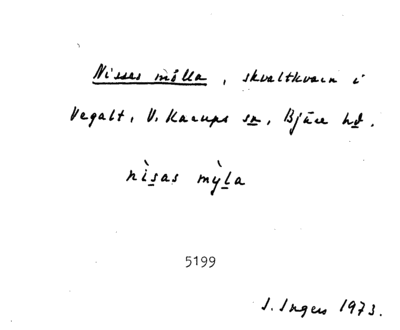 Nisses mölla, skvaltkvarn i
Vegalt, V. Karups sn, Bjäre hd.
nìsas mỳla
5199
I. Ingers 1973.